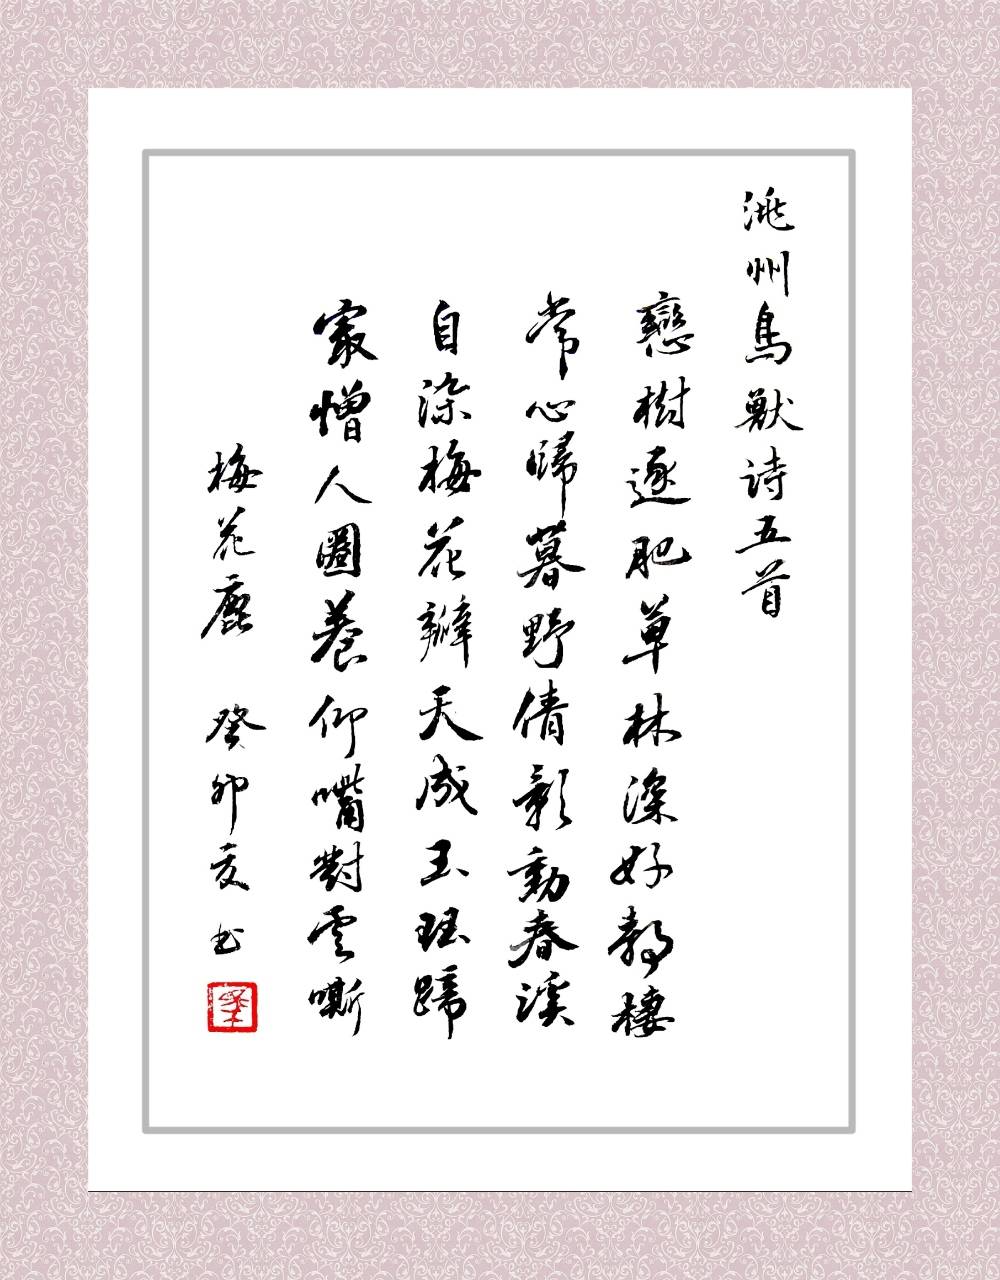 洮州鳥獸诗五首
戀樹逐肥草林深好靜棲
常心歸暮野倩影動春溪
自染梅花瓣天成玉琺蹄
最憎人圈養仰嘴對雲嘶
梅花鹿 癸卯夏书